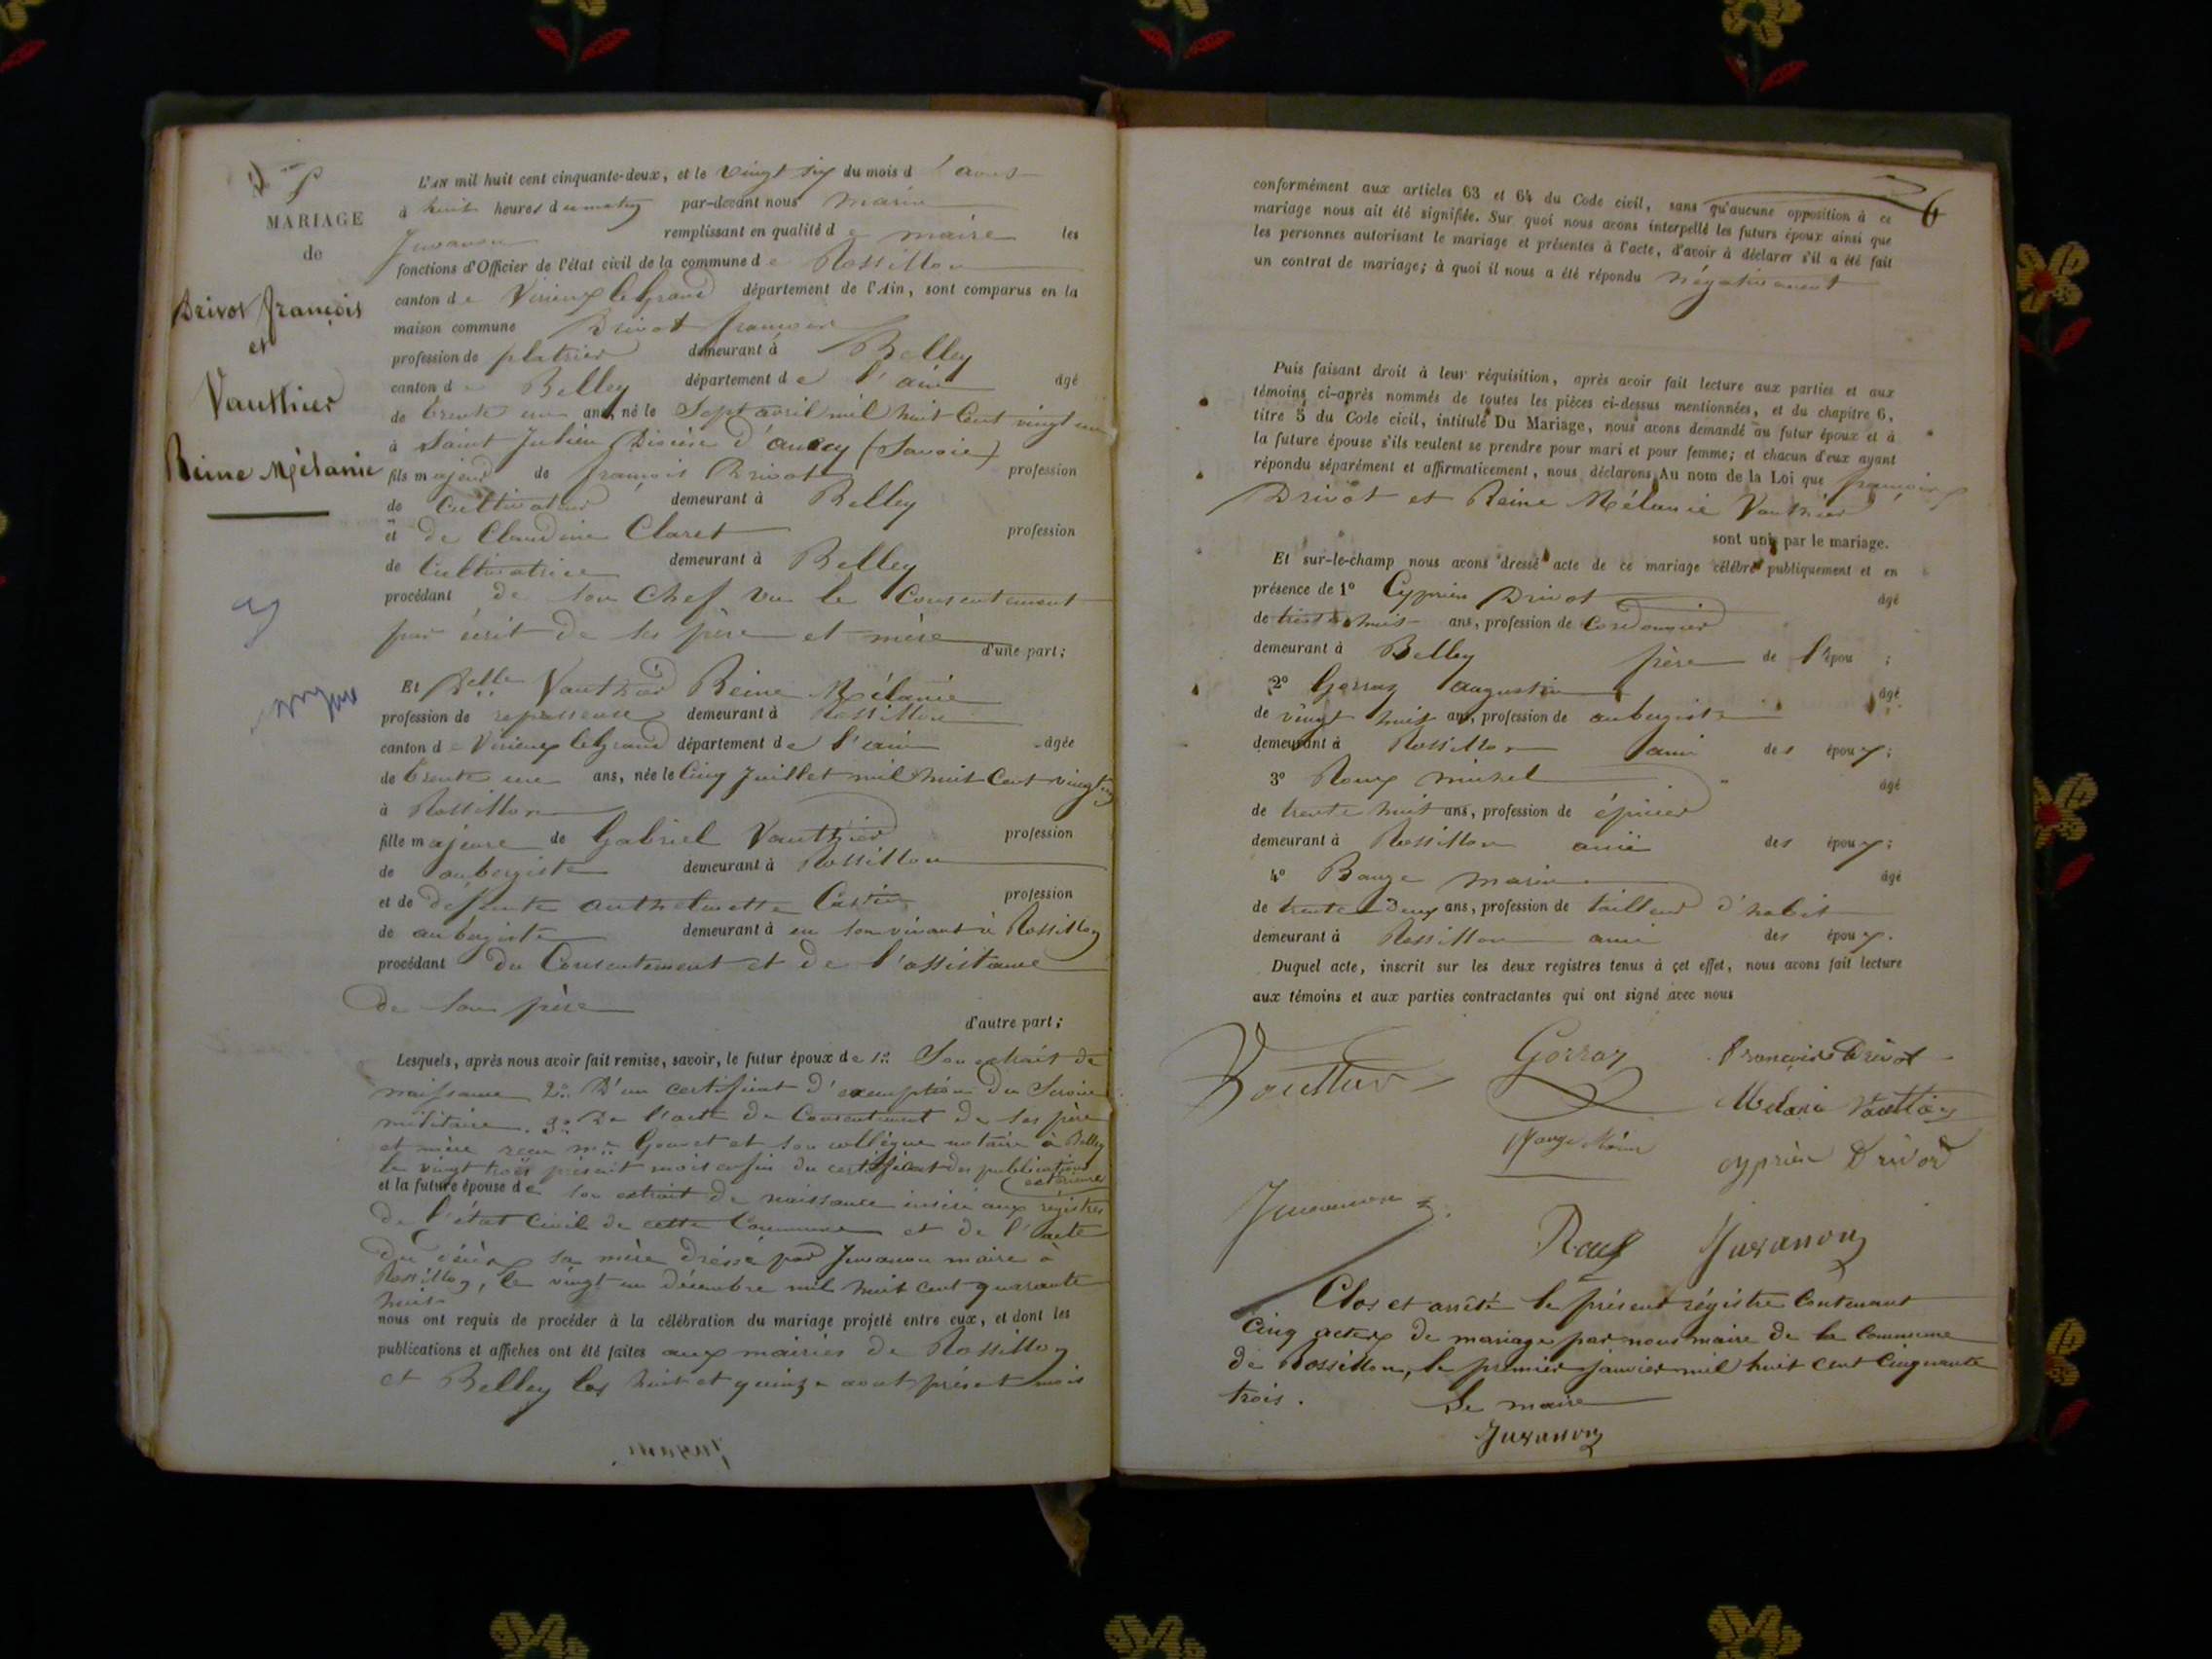 MARIAGE
de
Drivot françois
et
Vauthier
Reine Mélanie
L'AN mil huit cent cinquante-deux, et le vingt six du mois d'aout
à huit heures du matin par-devant nous Marin
Juvanon remplissant en qualité de maire les
fonctions d'Officier de l'état civil de la commune de Rossillon
canton de Virieux le grand département de l'Ain, sont comparus en la
maison commune Drivot françois
profession de platrier demeurant à Belley
canton de Belley département de l'ain âgé
de trente un ans, né le Sept avril mil huit Cent vingt un
à Saint Julien Diocèse d'anecy (Savoie)
fils majeur de françois Drivot profession
de Cultivateur demeurant à Belley
et de Claudine Claret profession
de Cultivatrice demeurant à Belley
procédant de son Chef vu le Consentement
par écrit de ses père et mère
d'une part;
Et Delle Vauthier Reine Mélanie
profession de repasseuse demeurant à Rossillon
canton de Virieux le grand département de l'ain âgée
de trente une ans, née le Cinq Juillet mil huit Cent vingt un
à Rossillon
fille majeure de Gabriel Vauthier profession
de aubergiste demeurant à Rossillon
et de défunte anthelmette profession
de aubergiste demeurant à en son vivant à Rossillon
procédant du Consentement et de l'assistance
de son père
d'autre part;
Lesquels, après nous avoir fait remise, savoir, le futur époux de 1º Son extrait de
naissance 2º D'un certificat d'exemption du Service
militaire. 3º De l'acte de Consentement de ses père
et mère reçu me et son collègue notaire à Belley
le vingt trois présent mois enfin du certificat des publications
extérieures
et la future épouse de son extrait de naissance inséré aux régistres
de l'état Civil de cette Commune et de l'acte
du décès sa mère dressé par Juvanon maire à
Rossillon, le vingt un décembre mil huit cent quarante
huit
nous ont requis de procéder à la célébration du mariage projeté entre eux, et dont les
publications et affiches ont été faites aux mairies de Rossillon
et Belley les huit et quinze aout présent mois
6
conformément aux articles 63 et 64 du Code civil, sans qu'aucune opposition à ce
mariage nous ait été signifiée. Sur quoi nous avons interpellé les futurs époux ainsi que
les personnes autorisant le mariage et présentes à l'acte, d'avoir à déclarer s'il a été fait
un contrat de mariage; à quoi il nous a été répondu négativement
Puis faisant droit à leur réquisition, après avoir fait lecture aux parties et aux
témoins ci-après nommés de toutes les pièces ci-dessus mentionnées, et du chapitre 6,
titre 5 du Code civil, intitulé Du Mariage, nous avons demandé au futur époux et à
la future épouse s'ils veulent se prendre pour mari et pour femme; et chacun d'eux ayant
répondu séparément et affirmativement, nous déclarons Au nom de la Loi que françois
Drivot et Reine Mélanie Vauthier
sont unis par le mariage.
Et sur-le-champ nous avons dressé acte de ce mariage célébré publiquement et en
présence de 1º Cyprien Drivot âgé
de trente huit ans, profession de Cordonnier
demeurant à Belley frère de l'épou ;
2º Gorraz augustin âgé
de vingt huit ans, profession de aubergiste
demeurant à Rossillon ami des époux;
3º Roux michel âgé
de trente huit ans, profession de épicier
demeurant à Rossillon ami des époux;
4º Bauge marin âgé
de trente Deux ans, profession de tailleur d'habit
demeurant à Rossillon ami des époux.
Duquel acte, inscrit sur les deux registres tenus à cet effet, nous avons fait lecture
aux témoins et aux parties contractantes qui ont signé avec nous
Vauthier Gorraz françois Drivot
Melanie Vauthier
Bauge Marin cyprien Drivot
Juvanon
Roux Juvanon
Clos et arrêté le présent régistre Contenant
Cinq actes de mariage par nous maire de la Commune
de Rossillon, le premier janvier mil huit cent Cinquante
trois. Le maire
Juvanon